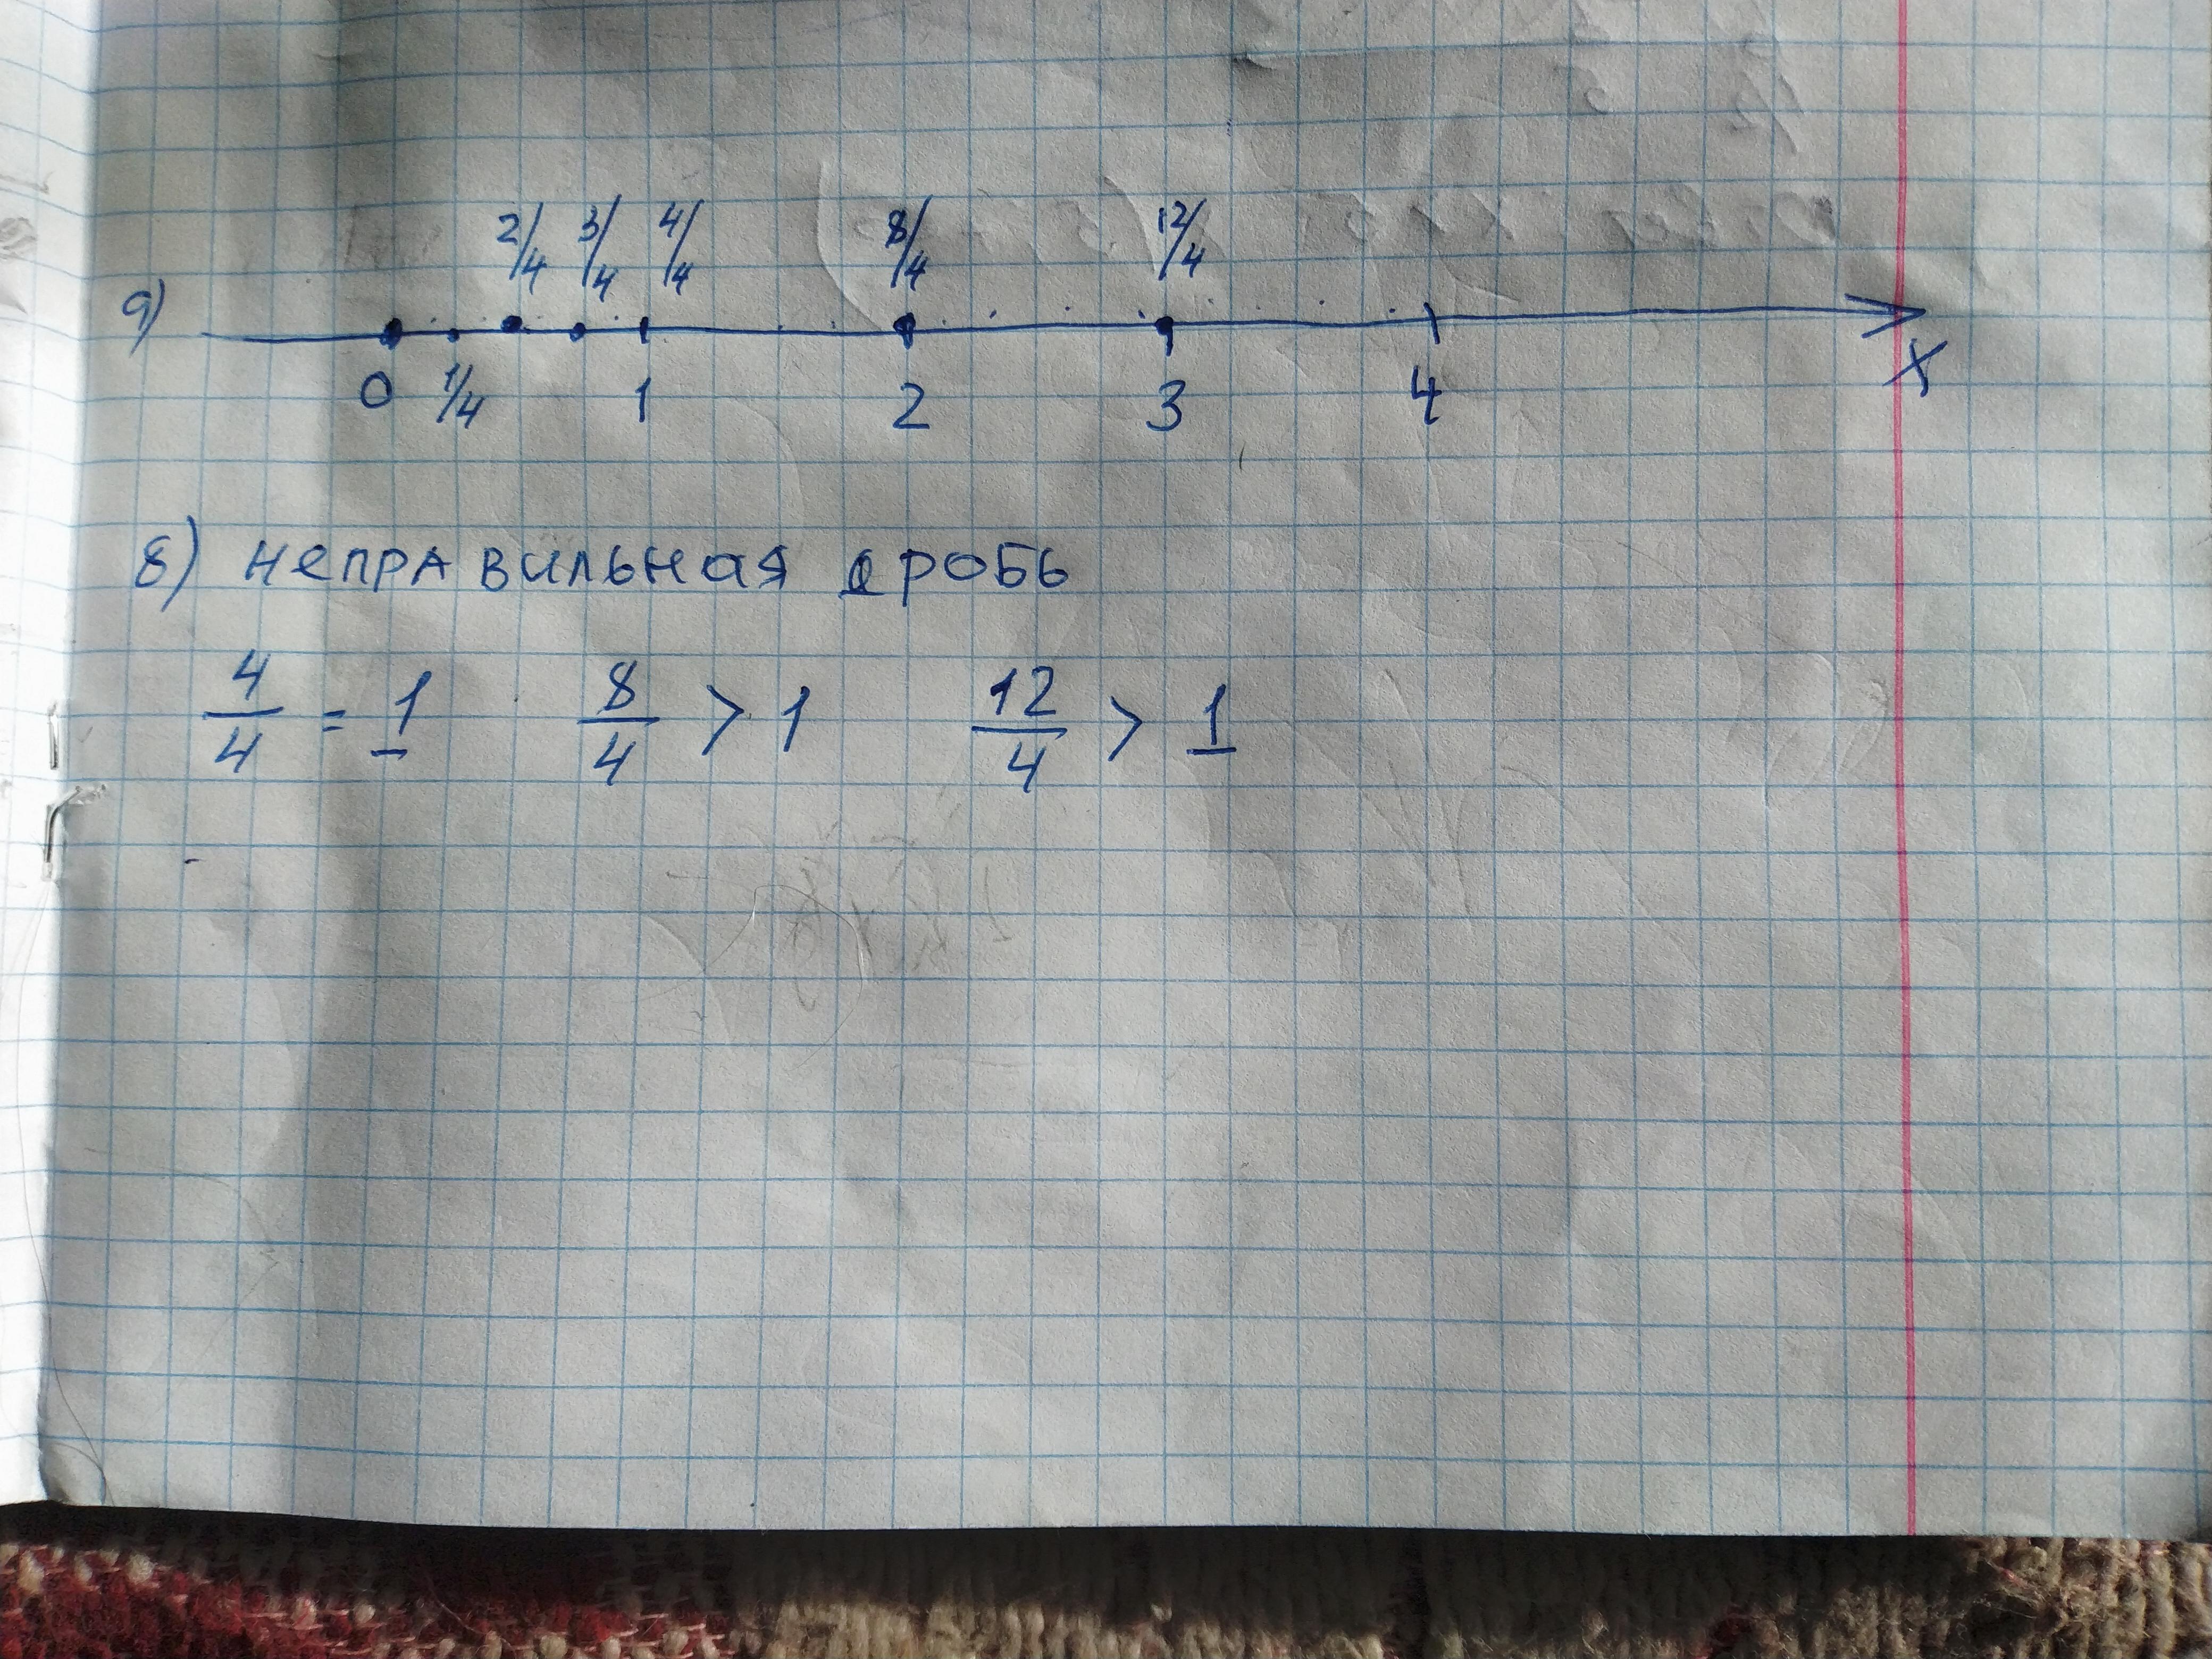 2/4 3/4 4/4 8/4 12/4
а)
0 1/4 1 2 3 4 x
б) неправильная дробь
4/4 = 1 8/4 > 1 12/4 > 1